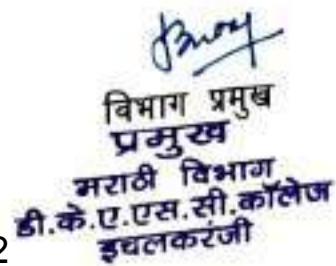 विभाग प्रमुख
प्रमुख
मराठी विभाग
डी.के.ए.एस.सी.कॉलेज
इचलकरंजी
2